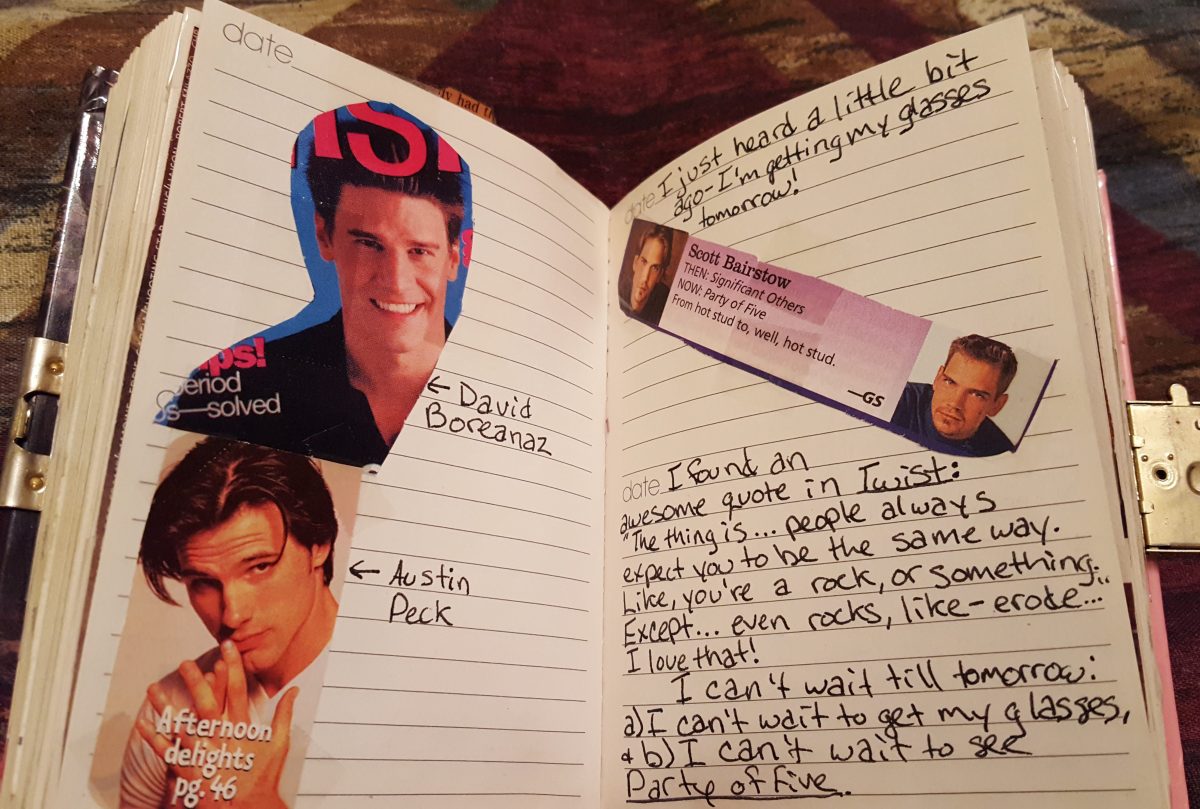 date
IST
ps!
eriod
s—solved
← David
Boreanaz
← Austin
Peck
Afternoon
delights
pg. 46
ly had t
date I just heard a little bit
ago - I'm getting my glasses
tomorrow!
Scott Bairstow
THEN: Significant Others
NOW: Party of Five
From hot stud to, well, hot stud.
—GS
date I found an
awesome quote in Twist:
"The thing is... people always
expect you to be the same way.
Like, you're a rock, or something.
Except... even rocks, like - erode..."
I love that!
I can't wait till tomorrow:
a) I can't wait to get my glasses,
& b) I can't wait to see
Party of Five.